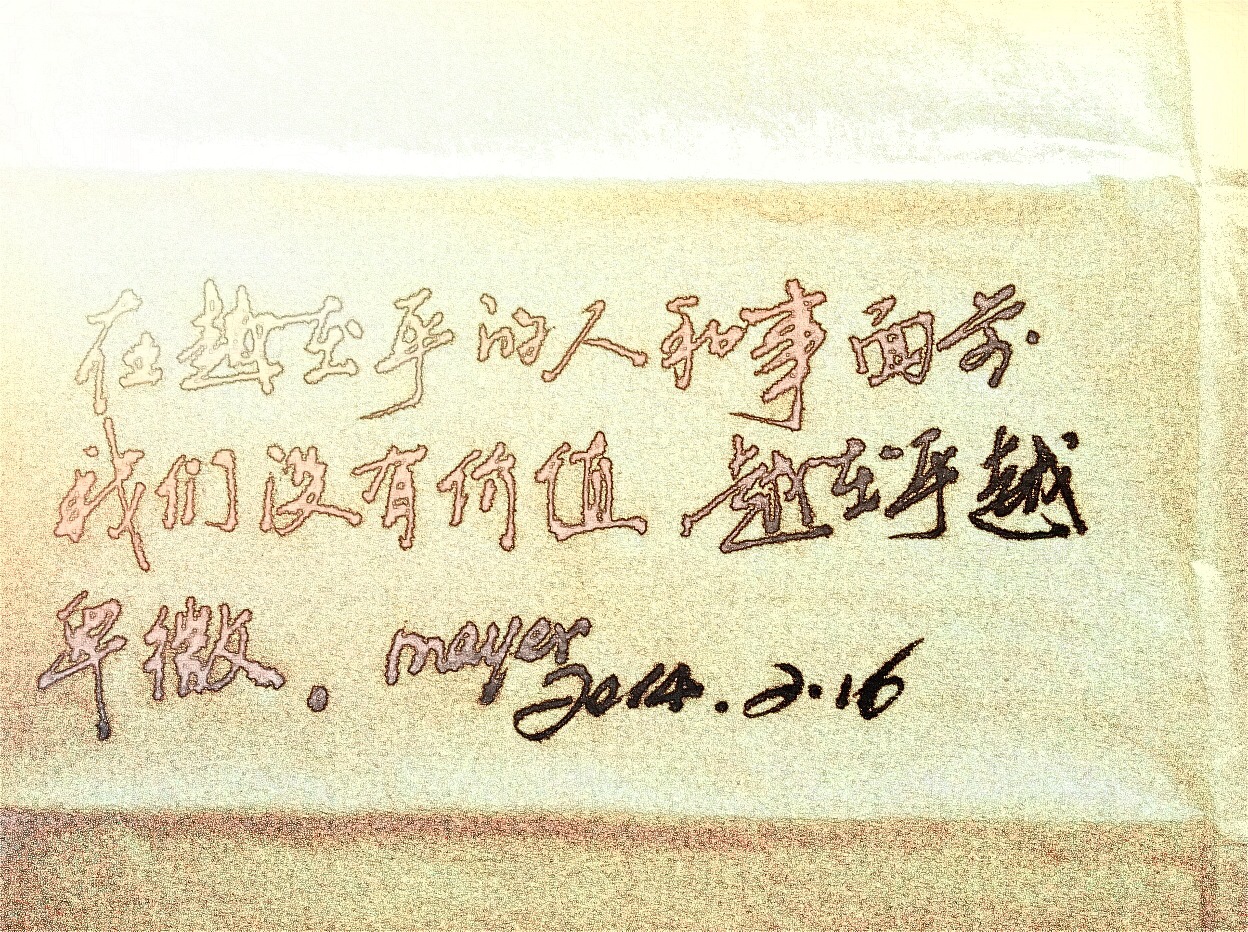 在越在乎的人和事面前.
我们没有价值 越在乎越
卑微.
mayer
2014.2.16